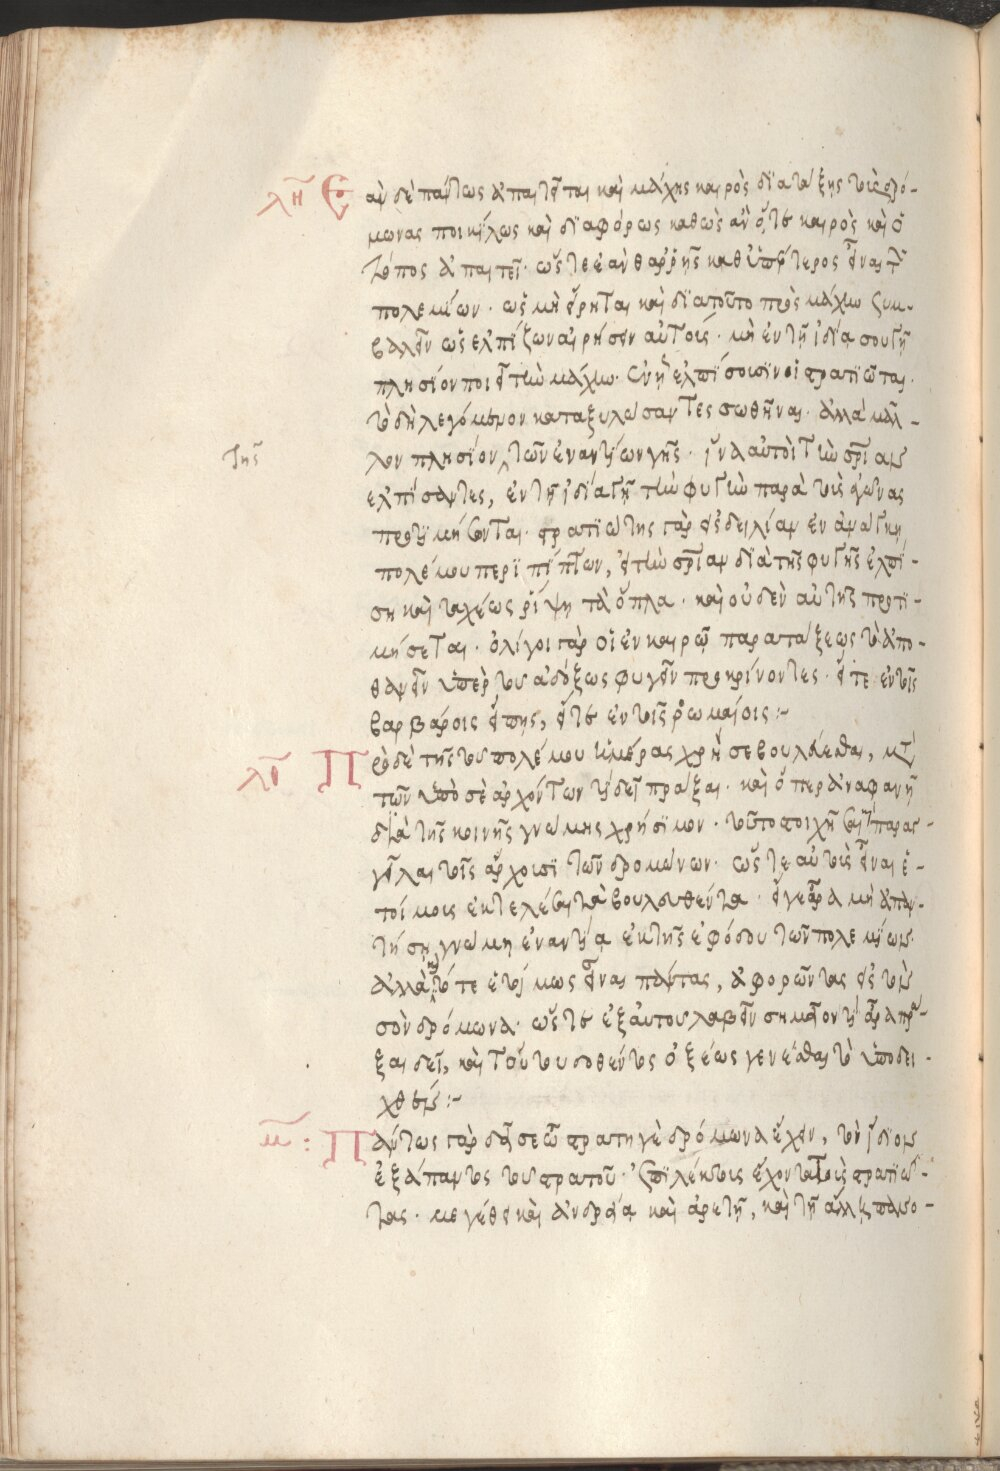 λη Ἐὰν δὲ πάντως ἀπαιτεῖται καὶ μάχης καιρὸς διατάξης τοὺς δρό-
μωνας ποικίλως καὶ διαφόρως καθὼς ἂν ὅ,τε καιρὸς καὶ ὁ
τόπος ἀπαιτεῖ· ὥστε ἐὰν θαρρῆς καθυπέρτερος εἶναι τῶν
πολεμίων· ὡς μὴ εἴρηται καὶ διατοῦτο πρὸς μάχην συμ-
βαλεῖν ὡς ἐλπίζων αἱρήσειν αὐτούς· μὴ ἐν τῇ ἰδία σου γῆ
πλησίον ποιεῖ τὴν μάχην· ἐλπίσουσιν οἱ στρατιῶται·
τὸ δὴ λεγόμενον καταξυλώσαντες σωθῆναι· ἀλλὰ μᾶλ-
τῆς
λον πλησίον τῶν ἐναντίων γῆς· ἵνα αὐτοὶ τὴν σωτηρίαν
ἐλπίσαντες, ἐν τῇ ἰδία γῆ τὴν φυγὴν παρὰ τοὺς ἀγῶνας
προτιμήσωνται· στρατιώτης γὰρ εἰς δειλίαν ἐν ἀνάγκη
πολέμου περιπίπτων, εἰ τὴν σωτηρίαν διὰ τῆς φυγῆς ἐλπί-
ση καὶ ταχέως ῥίψη τὰ ὅπλα· καὶ οὐδὲν αὐτῆς προτι-
μήσεται· ὀλίγοι γὰρ οἱ ἐν καιρῷ παρατάξεως τὸ ἀπο-
θανεῖν ὑπὲρ τοῦ ἀδόξως φυγεῖν προκρίνοντες· εἴτε ἐν τοῖς
βαρβάροις εἴπης, εἴτε ἐν τοῖς ῥωμαίοις:-
λθ Πρὸ δὲ τῆς τοῦ πολέμου ἡμέρας χρή σε βουλεύεσθαι, μετὰ
τῶν ὑπὸ σὲ ἀρχόντων τί δεῖ πρᾶξαι· καὶ ὅπερ ἀναφανῆ
διὰ τῆς κοινῆς γνώμης χρήσιμον· τοῦτο στοιχῆσαι καὶ παραγ-
γεῖλαι τοῖς ἄρχουσι τῶν δρομώνων· ὥστε αὐτοὺς εἶναι ἑ-
τοίμοις ἐκτελέσαι τὰ βουλευθέντα· εἴγε ἄρα μὴ ἀπαν-
τήση γνώμη ἐναντία ἐκ τῆς ἐφόδου τῶν πολεμίων·
ἀλλὰ καὶ τότε ἑτοίμως εἶναι πάντας, ἀφορῶντας εἰς τὸν
σὸν δρόμωνα· ὥστε ἐξ αὐτοῦ λαβεῖν σημεῖον τί ἄρα πρᾶ-
ξαι δεῖ, καὶ τούτου δοθέντος ὀξέως γενέσθαι τὸ ὑποδει-
χθέν:-
μ: Πάντως γὰρ δεῖ σε ὦ στρατηγὲ δρόμωνα ἔχειν, τὸν ἴδιον
ἐξ ἅπαντος τοῦ στρατοῦ· ἐπιλέκτους ἔχοντα τοὺς στρατιώ-
τας· μεγέθει καὶ ἀνδρεία καὶ ἀρετῇ, καὶ τῇ ἄλλῃ πανο-